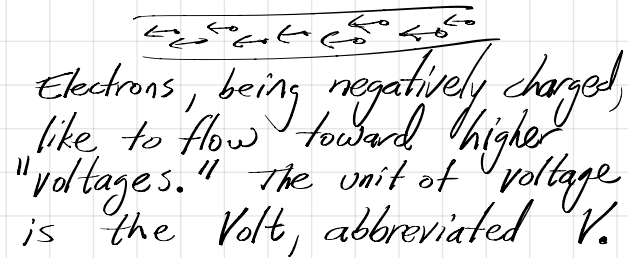 Electrons, being negatively charged,
like to flow toward higher
"voltages." The unit of voltage
is the Volt, abbreviated V.